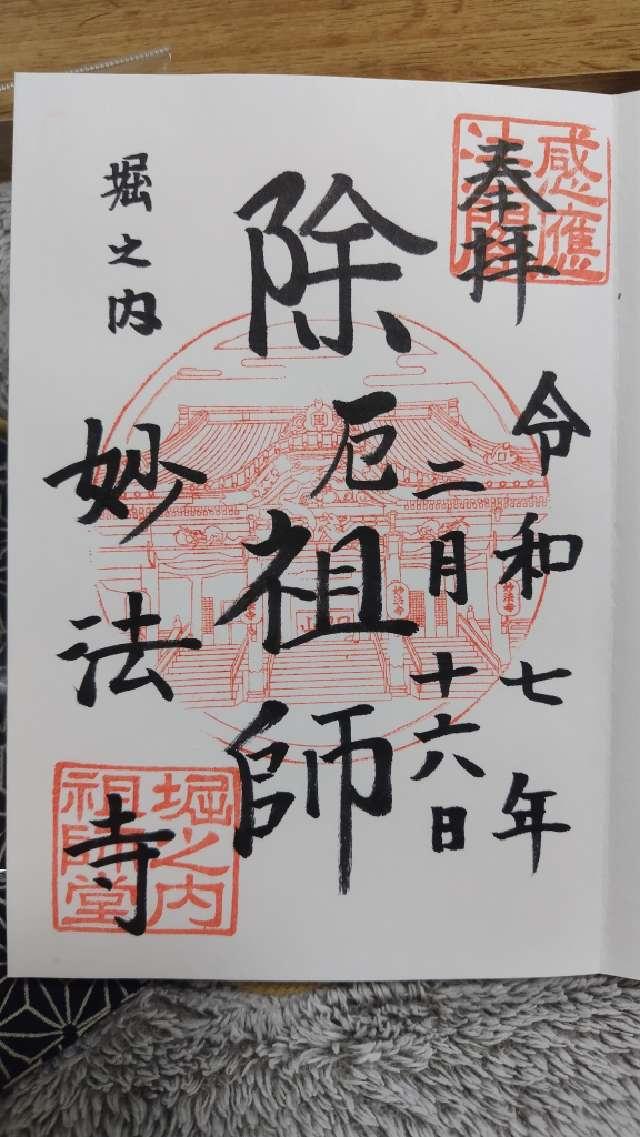 奉拝
感應
法閣
令和七年
二月十六日
除厄祖師
堀之内
妙法寺
堀之内
祖師堂
妙法寺